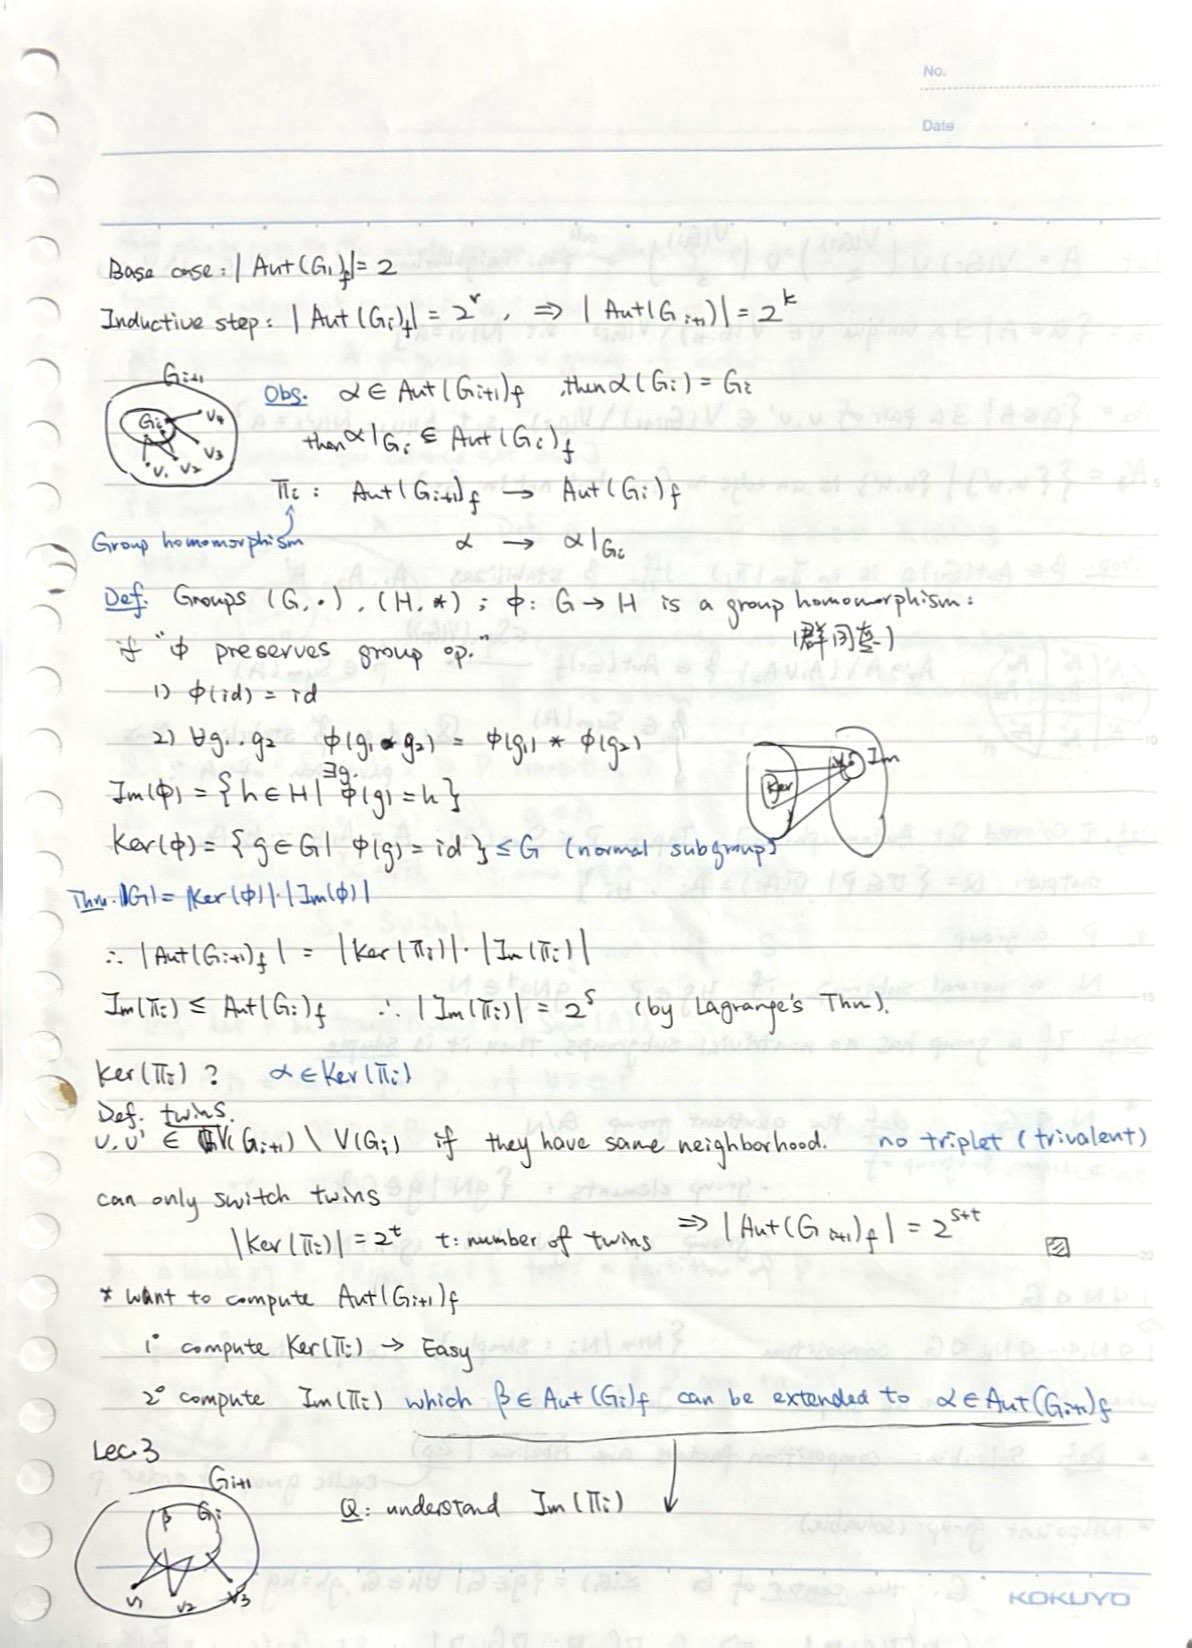 No.
Date
Base case: |Aut(G₁)_f| = 2
Inductive step: |Aut(Gᵢ)_f| = 2^r, ⇒ |Aut(Gᵢ₊₁)| = 2^k
Gᵢ₊₁
Gᵢ
v₄
v₃
v₁ v₂
Obs. α ∈ Aut(Gᵢ₊₁)_f, then α(Gᵢ) = Gᵢ
then α|Gᵢ ∈ Aut(Gᵢ)_f
πᵢ: Aut(Gᵢ₊₁)_f → Aut(Gᵢ)_f
Group homomorphism
α → α|Gᵢ
Def. Groups (G, ·), (H, *); ϕ: G → H is a group homomorphism:
(群同态)
if "ϕ preserves group op."
1) ϕ(id) = id
2) ∀g₁, g₂ ϕ(g₁ · g₂) = ϕ(g₁) * ϕ(g₂)
Ker
Im
Im(ϕ) = {h ∈ H | ∃g. ϕ(g) = h}
Ker(ϕ) = {g ∈ G | ϕ(g) = id} ≤ G (normal subgroup)
Thm. |G| = |Ker(ϕ)|·|Im(ϕ)|
∴ |Aut(Gᵢ₊₁)_f| = |Ker(πᵢ)|·|Im(πᵢ)|
Im(πᵢ) ≤ Aut(Gᵢ)_f ∴ |Im(πᵢ)| = 2^s (by Lagrange's Thm).
Ker(πᵢ)? α ∈ Ker(πᵢ)
Def. twins.
v, v' ∈ V(Gᵢ₊₁) \ V(Gᵢ) if they have same neighborhood. no triplet (trivalent)
can only switch twins
|Ker(πᵢ)| = 2^t t: number of twins ⇒ |Aut(Gᵢ₊₁)_f| = 2^{s+t}
* want to compute Aut(Gᵢ₊₁)_f
1° compute Ker(πᵢ) → Easy
2° compute Im(πᵢ) which β ∈ Aut(Gᵢ)_f can be extended to α ∈ Aut(Gᵢ₊₁)_f
Lec. 3
Gᵢ₊₁
β Gᵢ
v₁ v₂ v₃
Q: understand Im(πᵢ)
KOKUYO